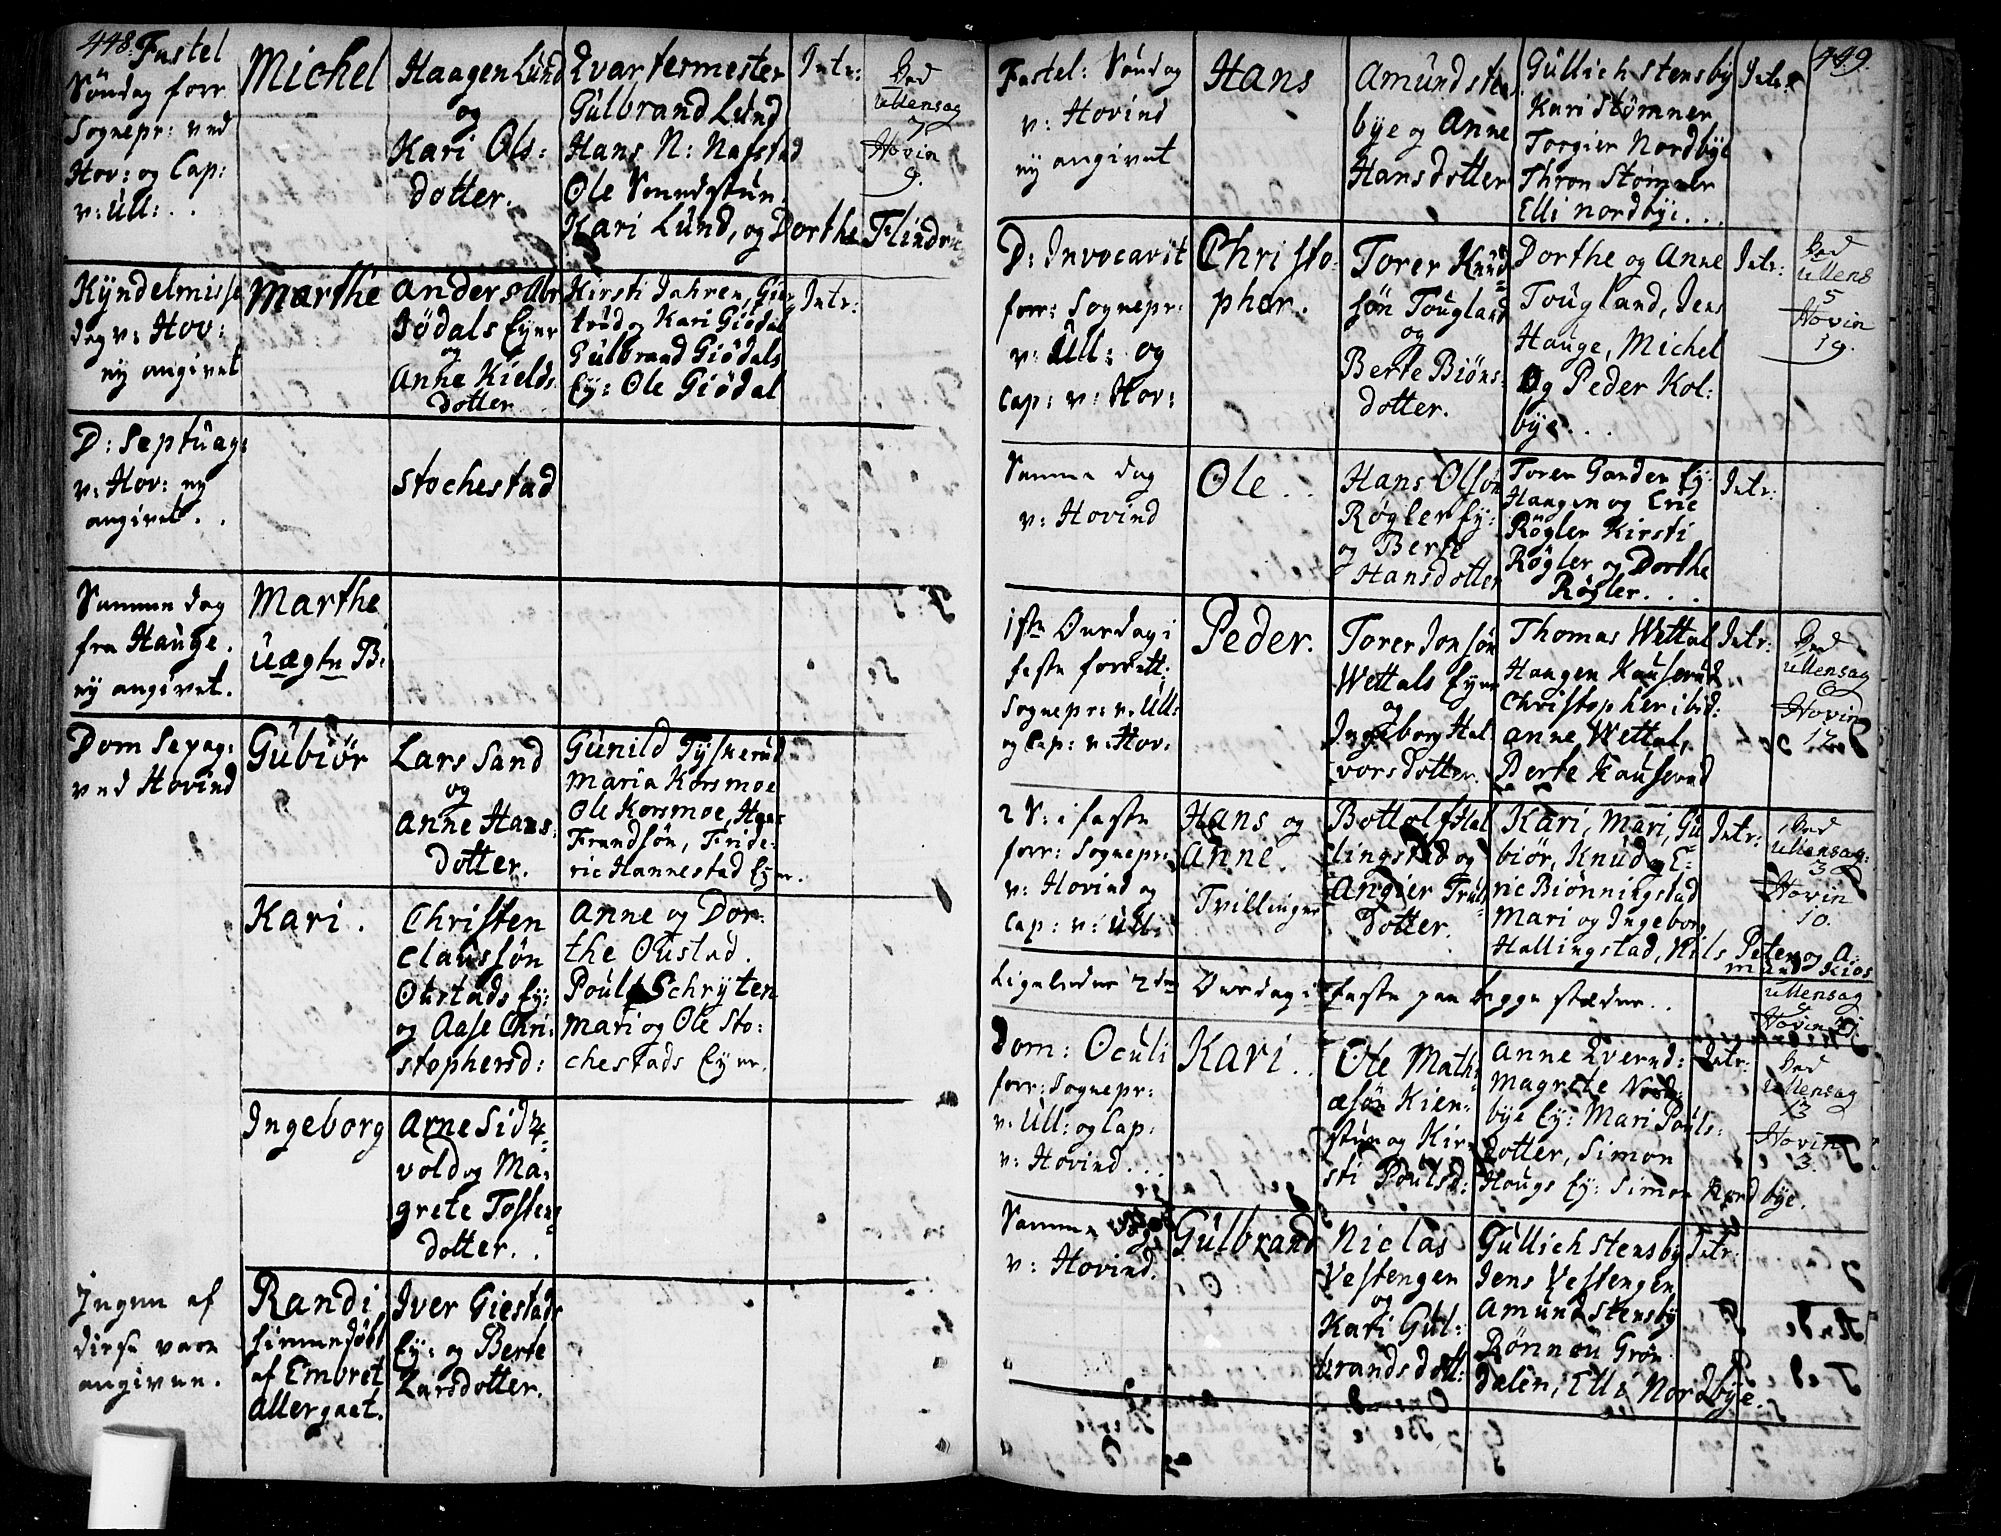 448. Fastel
Søndag forr
Sognepr: ved
Hov: og Cap:
v: Ull: . .
Michel
Haagen Lund
og
Kari Ols:
dotter.
Qvartermester
Gülbrand Lund
Hans N: Nafstad
Ole
Kari Lünd, og Dorthe Flindr
Intr:
Ved
Ullensag
7
Hovin
9.
Kyndelmisse
dag v: Hov:
ny angivet
Marthe
Anders
Eyer
og
Anne Kields
dotter
Kirsti Jahren, Gier
trud og Kari Giødal
Gülbrand Giødals
Ey: Ole Giødal
Intr:
D: Septuag:
v: Hov: ny
angivet . .
Stochestad
Samme dag
fra Hauge.
ny angivet.
Marthe
Uægte B:
Dom Sexag:
ved Hovind
Gübiør
Lars Sand
og
Anne Hans
dotter.
Günild Tyskerud
Maria Korsmoe
Ole Korsmoe, Hans
Frandsøn, Fride:
ric Hannestad Eyer.
Kari.
Christen
Claussøn
Oustads Ey:
og Aase Chri:
stophersd:
Anne og Dor:
the Oustad.
Poul Schryten
Mari og Ole Sto:
chestads Eyer.
Ingeborg
Arne Sid
vold og Ma:
grete Tosten
dotter. .
Ingen af
disse vare
angiven.
Randi
hjemmedøbt
af Embret
Allergaet.
Iver Giestads
Ey: og Berte
Larsdotter.
449.
Fastel: Søndag
v: Hovind
ny angivet
Hans
Amünd
bye og Anne
Hansdotter
Güllich Stensby
Kari Stømner
Torgier Nordbye
Thron Stomner
Elli Nordbye. . .
Intr:
D: Invocavit
forr: Sognepr:
v: Ull: og
Cap: v: Hov:
Christo:
pher.
Torer Knud
søn Tougland
og
Berte Biøns:
dotter.
Dorthe og Anne
Tougland, Jens
Hauge, Michel
Og Peder Kol:
bye. . .
Intr:
Ved
Ullens
5
Hovin
19.
Samme dag
v: Hovind
Ole . .
Hans Olsøn
Røgler Ey:
og Berte
Hansdotter
Toren Ganden Ey:
Haagen og Eric
Røgler Kirsti
Røgler og Dorthe
Røgler. . .
Intr:
1ste Onsdag i
faste forrett:
Sognepr: v: Ull:
og Cap: v: Hov:
Peder.
Torer Jonsøn
Wettals Eyer
og
Ingeborg Hal
vorsdotter.
Thomas Wettal
Haagen Kauserud
Christopher ibid:
Anne Wettal,
Berte Kauserud
Intr:
Ved
Ullensag
6
Hovin
17.
2 S: i faste
forr: Sognepr:
v: Hovind og
Cap: v: Ull:
Hans og
Anne.
Tvillinger
Bottolf Hal
lingstad og
Angier Truls
Dotter.
Kari, Mari, Gü
biør, Knud og E:
ric Biønningstad
Mari og Ingeborg
Hallingstad, Nils Peter og A
Intr:
Ved
Ullensag:
3
Hovin
10.
Ligeledes 2den Onsdag i Faste paa begge stæder. .
Ullensag
Hovin
Dom: Oculi
forr: Sognepr:
v: Ull: og Cap:
v: Hovind . . .
Kari . .
Ole Math:
æsøn Kien:
stun og Kir:
sti Poulsd:
Anne Qvernd:
Magrete Nord:
bye Ey: Mari Pouls:
Dotter, Simon
Hougs Ey: Simon Nordbye.
Intr:
Ved
Ullensag
13
Hovin
3.
Samme Dag
v: Hovind.
Gülbrand
Niclas
Vestengen
og
Kari Gül:
brandsdott:
Güllich Stensby
Jens Vestengen
Amünd Stensby
Rønnou Grøn
dalen, Elli Nordbye.
Intr: